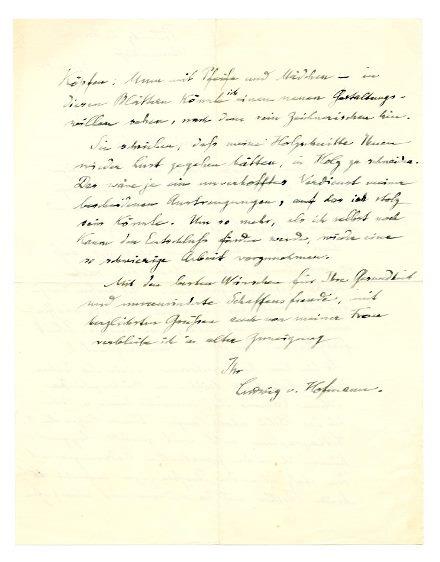 Köpfen: Mann mit Pfeife und Mädchen — in
diesen Blättern könnte ich einen neuen Gestaltungs-
willen sehen, nach dem rein Zeichnerischen hin.
Sie schrieben, dass meine Holzschnitte Ihnen
wieder Lust gegeben hätten, in Holz zu schneiden.
Das wäre ja ein unverhofftes Verdienst meiner
bescheidenen Anstrengungen, auf das ich stolz
sein könnte. Um so mehr, als ich selbst noch
kaum den Entschluss finden werde, wieder eine
so schwierige Arbeit vorzunehmen.
Mit den besten Wünschen für Ihre Gesundheit
und unverminderte Schaffensfreude, mit
herzlichsten Grüßen auch von meiner Frau
verbleibe ich in alter Zuneigung
Ihr
Ludwig v. Hofmann.